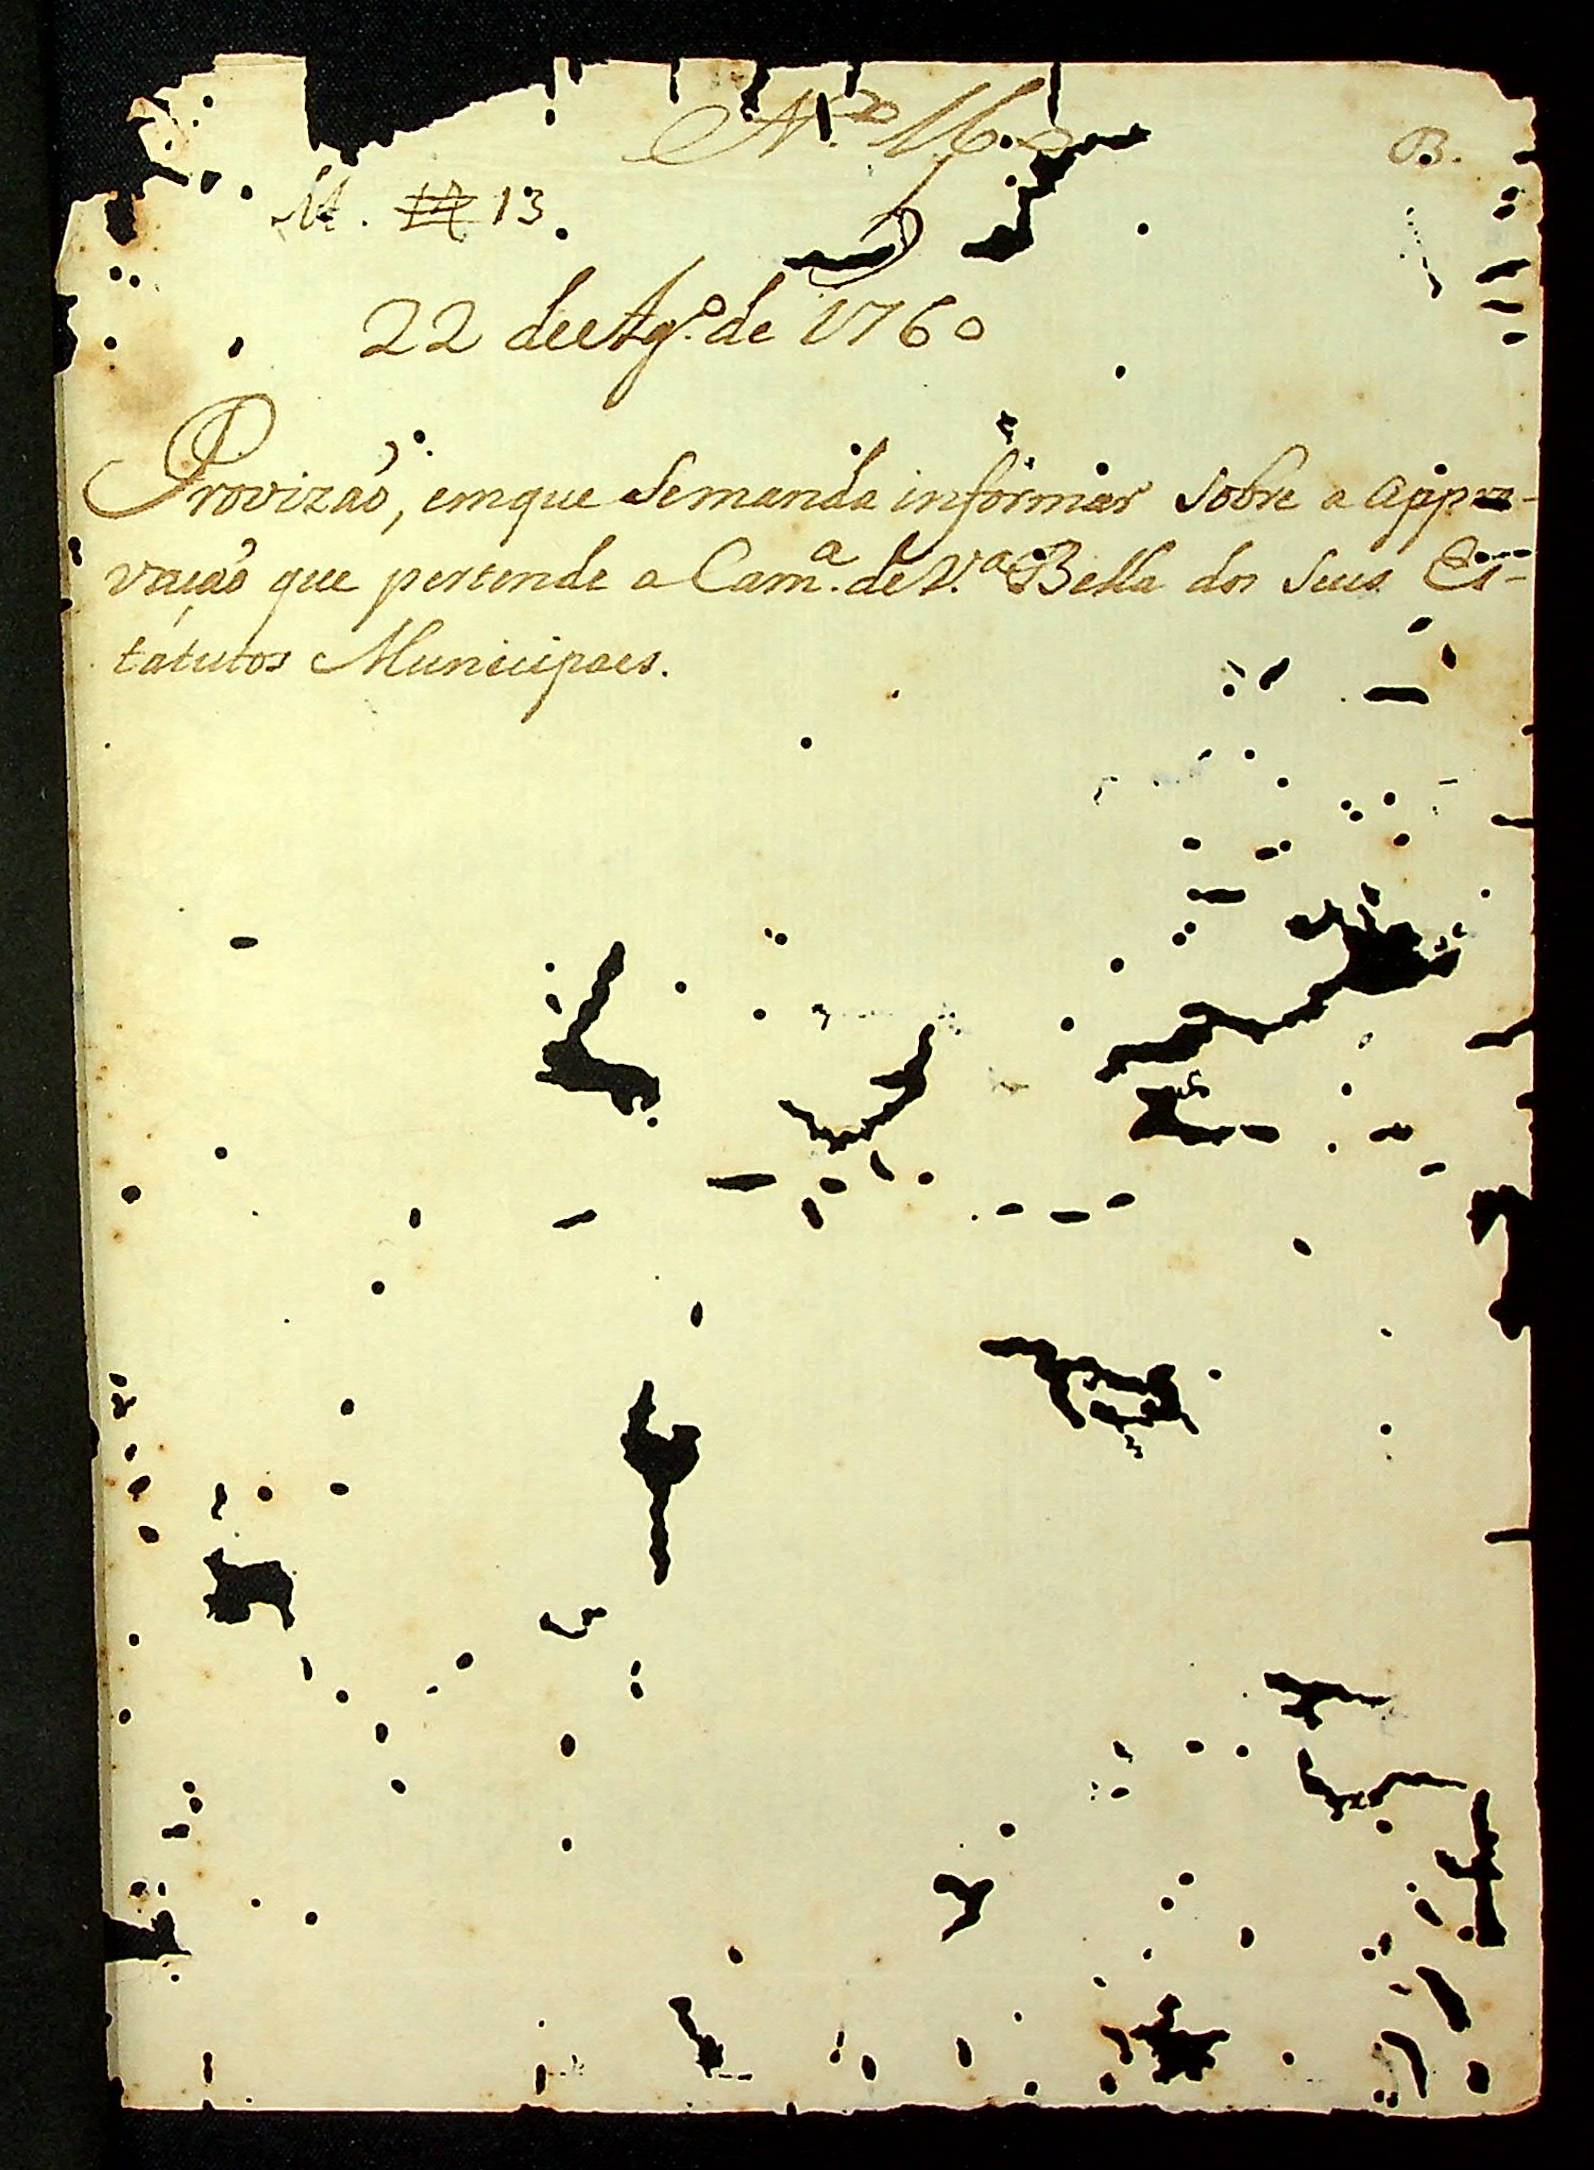 N.º 16.
B.
M. 13.
22 de Ag.º de 1760
Provizaõ, emque Semanda informar Sobre a appro-
vaçaõ que pertende a Cam.ª de V.ª Bella dos Seus Es-
tatutos Municipaes.